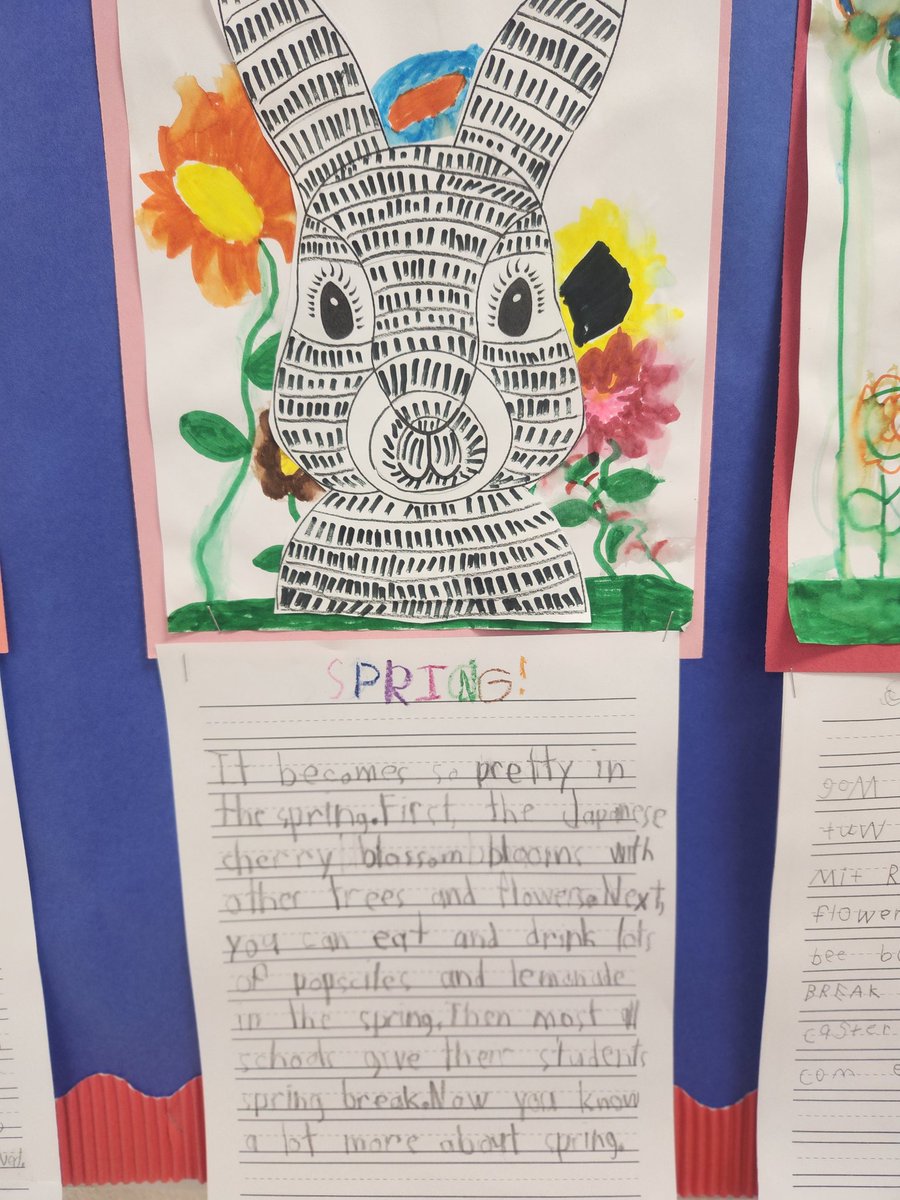 SPRING!
It becomes so pretty in
the spring. First, the Japanese
cherry blossom blooms with
other trees and flowers. Next,
you can eat and drink lots
of popsciles and lemonade
in the spring. Then most all
schools give their students
spring break. Now you know
a lot more about spring.
Mit
flower
bee
BREAK
easter
com